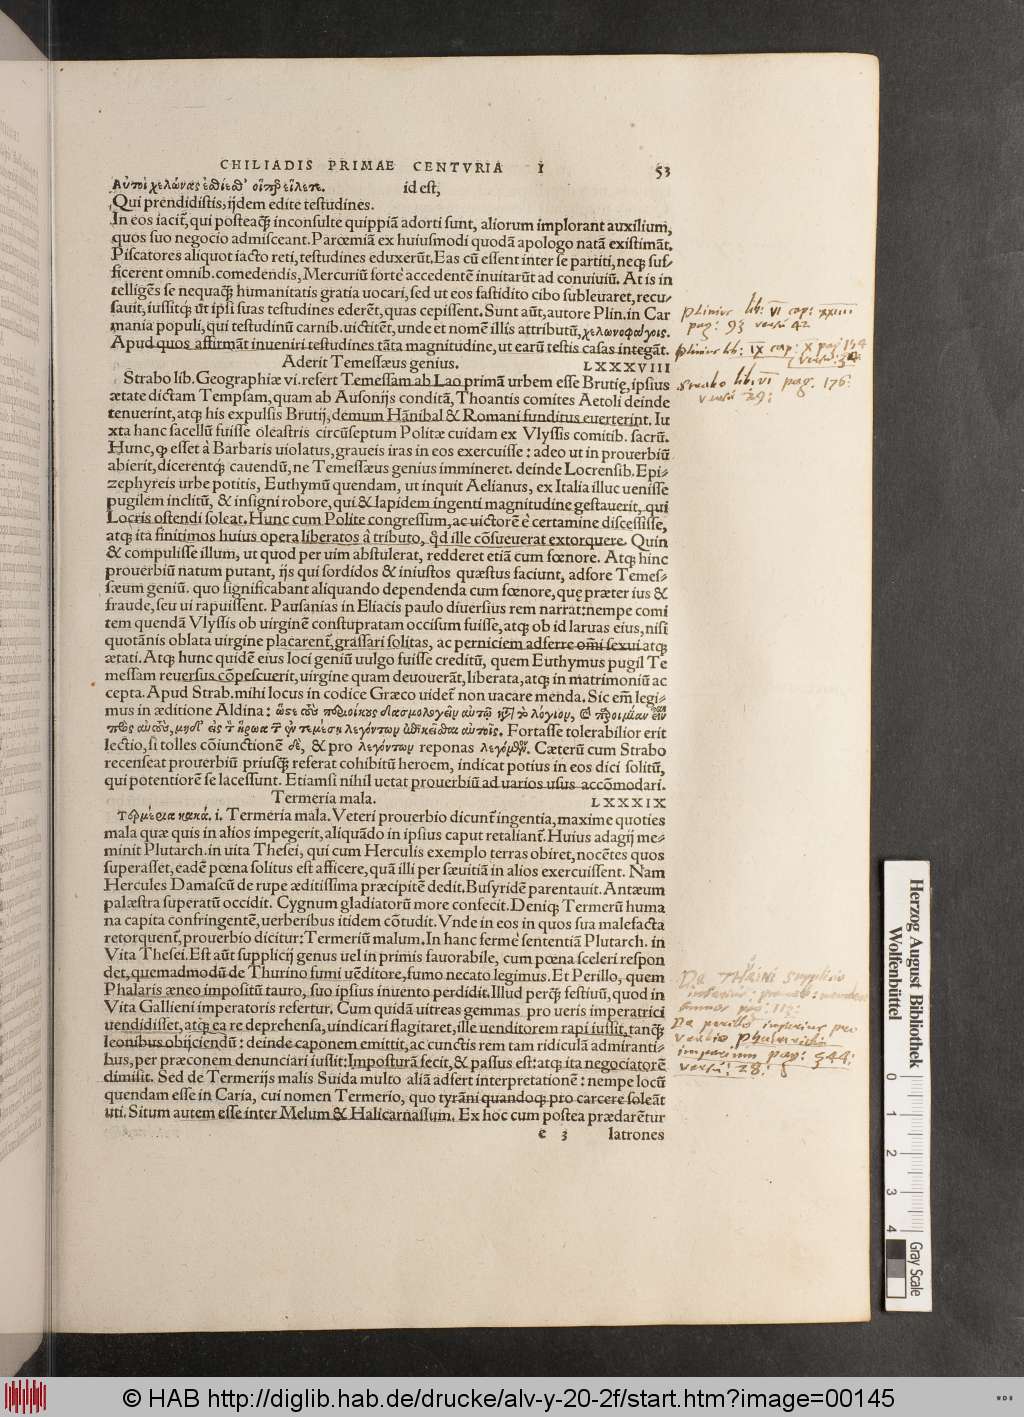 CHILIADIS PRIMAE CENTVRIA I 53
Αὐτοὶ χελώνας ἐσθίεθ' οἵπερ εἵλετε. id est,
Qui prendidistis, ijdem edite testudines.
In eos iacit᷑, qui posteaq̃ʒ inconsulte quippiã adorti sunt, aliorum implorant auxilium,
quos suo negocio admisceant. Parœmiã ex huiusmodi quodã apologo natã existimãt.
Piscatores aliquot iacto reti, testudines eduxerũt. Eas cũ essent inter se partiti, neqʒ suf-
ficerent omnib. comedendis, Mercuriũ forte accedentẽ inuitarũt ad conuiuiũ. At is in
telligẽs se nequaq̃ʒ humanitatis gratia uocari, sed ut eos fastidito cibo subleuaret, recu-
sauit, iussitqʒ ut ipsi suas testudines ederẽt, quas cepissent. Sunt aũt, autore Plin. in Car
mania populi, qui testudinũ carnib. uictitẽt, unde et nomẽ illis attributũ, χελωνοφάγοις.
Apud quos affirmãt inueniri testudines tãta magnitudine, ut earũ testis casas integãt.
Aderit Temessæus genius. LXXXVIII
Strabo lib. Geographiæ vi. refert Temessam ab Lao primã urbem esse Brutię, ipsius
ætate dictam Tempsam, quam ab Ausonijs conditã, Thoantis comites Aetoli deinde
tenuerint, atqʒ his expulsis Brutij, demum Hãnibal & Romani funditus euerterint. Iu
xta hanc sacellũ fuisse oleastris circũseptum Politæ cuidam ex Vlyssis comitib. sacrũ.
Hunc, q̃ esset à Barbaris uiolatus, graueis iras in eos exercuisse: adeo ut in prouerbiũ
abierit, dicerentqʒ cauendũ, ne Temessæus genius immineret. deinde Locrensib. Epi-
zephyreis urbe potitis, Euthymũ quendam, ut inquit Aelianus, ex Italia illuc uenisse
pugilem inclitũ, & insigni robore, qui & lapidem ingenti magnitudine gestauerit, qui
Locris ostendi soleat. Hunc cum Polite congressum, ac uictorẽ è certamine discessisse,
atqʒ ita finitimos huius opera liberatos à tributo, q̃d ille cõsueuerat extorquere. Quin
& compulisse illum, ut quod per uim abstulerat, redderet etiã cum fœnore. Atqʒ hinc
prouerbiũ natum putant, ijs qui sordidos & iniustos quæstus faciunt, adfore Temes-
sæum geniũ. quo significabant aliquando dependenda cum fœnore, quę præter ius &
fraude, seu ui rapuissent. Pausanias in Eliacis paulo diuersius rem narrat: nempe comi
tem quendã Vlyssis ob uirginẽ constupratam occisum fuisse, atqʒ ob id laruas eius, nisi
quotãnis oblata uirgine placarent᷑, grassari solitas, ac perniciem adferre om̃i sexui atqʒ
ætati. Atqʒ hunc quidẽ eius loci geniũ uulgo fuisse creditũ, quem Euthymus pugil Te
messam reuersus cõpescuerit, uirgine quam deuouerãt, liberata, atqʒ in matrimoniũ ac
cepta. Apud Strab. mihi locus in codice Græco uidet᷑ non uacare menda. Sic em̃ legi-
mus in æditione Aldina:
Fortasse tolerabilior erit
lectio, si tolles cõiunctionẽ δὲ, & pro λεγόντων reponas λεγόμενον. Cæterũ cum Strabo
recenseat prouerbiũ priusq̃ʒ referat cohibitũ heroem, indicat potius in eos dici solitũ,
qui potentiorẽ se lacessunt. Etiamsi nihil uetat prouerbiũ ad uarios usus accõmodari.
Termeria mala. LXXXIX
Τερμέρεια κακά. i. Termeria mala. Veteri prouerbio dicunt᷑ ingentia, maxime quoties
mala quæ quis in alios impegerit, aliquãdo in ipsius caput retaliant᷑. Huius adagij me-
minit Plutarch. in uita Thesei, qui cum Herculis exemplo terras obiret, nocẽtes quos
superasset, eadẽ pœna solitus est afficere, quã illi per sæuitiã in alios exercuissent. Nam
Hercules Damascũ de rupe æditissima præcipitẽ dedit. Busyridẽ parentauit. Antæum
palæstra superatũ occidit. Cygnum gladiatorũ more confecit. Deniqʒ Termerũ huma
na capita confringentẽ, uerberibus itidem cõtudit. Vnde in eos in quos sua malefacta
retorquent᷑, prouerbio dicitur: Termeriũ malum. In hanc ferme sententiã Plutarch. in
Vita Thesei. Est aũt supplicij genus uel in primis fauorabile, cum pœna sceleri respon
det, quemadmodũ de Thurino fumi uẽditore, fumo necato legimus. Et Perillo, quem
Phalaris æneo impositũ tauro, suo ipsius inuento perdidit. Illud perq̃ʒ festiuũ, quod in
Vita Gallieni imperatoris refertur. Cum quidã uitreas gemmas pro ueris imperatrici
uendidisset, atqʒ ea re deprehensa, uindicari flagitaret, ille uenditorem rapi iussit, tanq̃ʒ
leonibus obijciendũ: deinde caponem emittit, ac cunctis rem tam ridiculã admiranti-
bus, per præconem denunciari iussit: Imposturã fecit, & passus est: atqʒ ita negociatorẽ
dimisit. Sed de Termerijs malis Suida multo aliã adfert interpretationẽ: nempe locũ
quendam esse in Caria, cui nomen Termerio, quo tyrãni quandoqʒ pro carcere soleãt
uti. Situm autem esse inter Melum & Halicarnassum. Ex hoc cum postea prædarẽtur
e 3 latrones
Plinius lib: VI cap: XXIIII
pag: 93 versu 42
Plinius lib: IX cap: X pag 154
versu: 34
Strabo lib: VI pag. 176:
versu 29:
De THurini supplicio
De perillo
pag: 544:
versu: 28:
Herzog August Bibliothek
Wolfenbüttel
0
1
2
3
4
Gray Scale
© HAB http://diglib.hab.de/drucke/alv-y-20-2f/start.htm?image=00145